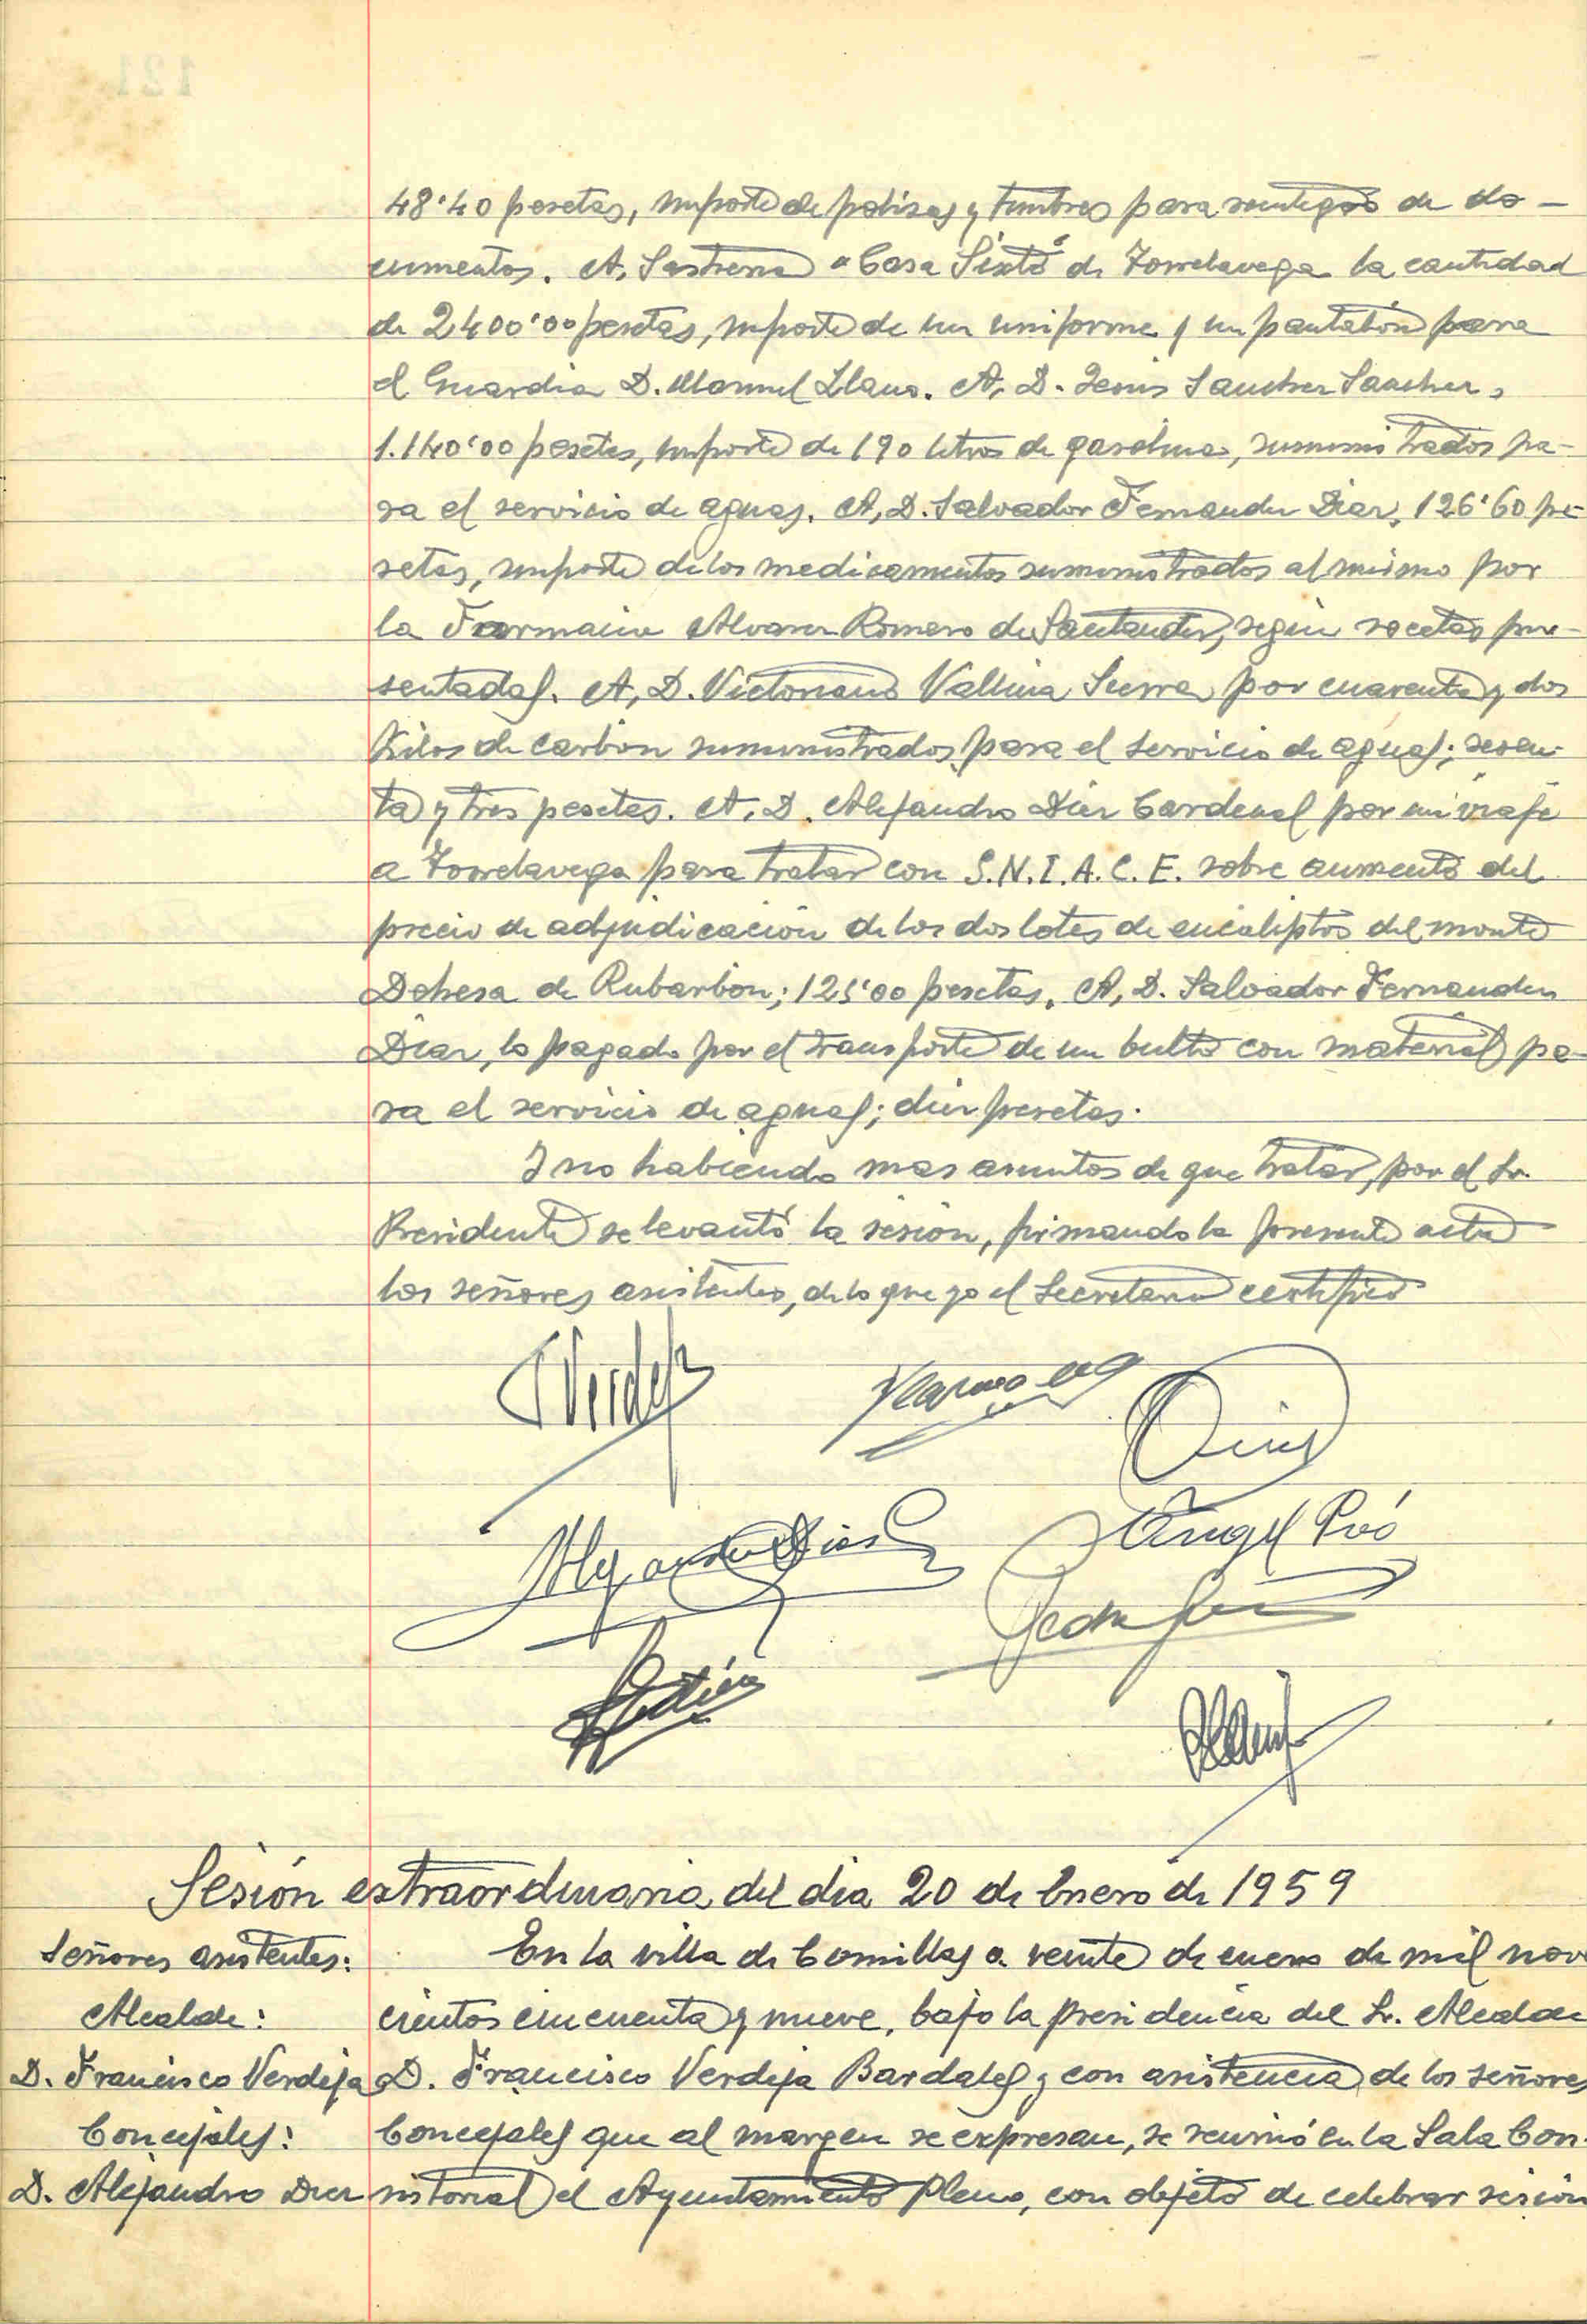 48'40 pesetas, importe de polizas y timbres para reintegros de do-
cumentos. A, Sastreria "Casa Sixto" de Torrelavega la cantidad
de 2400'00 pesetas, importe de un uniforme y un pantalón para
el Guardia D. Manuel Llano. A, D. Jesus Sanchez Sanchez,
1.140'00 pesetas, importe de 190 litros de gasolina, suministrados pa-
ra el servicio de aguas. A, D. Salvador Fernandez Diaz, 126'60 pe-
setas, importe de los medicamentos suministrados al mismo por
la Farmacia Alvarez Romero de Santander, según recetas pre-
sentadas. A, D. Victoriano Vallina Sierra por cuarenta y dos
kilos de carbon suministrados para el servicio de aguas; sesen-
ta y tres pesetas. A, D. Alejandro Diez Cardenal por un viaje
a Torrelavega para tratar con S.N.I.A.C.E. sobre aumento del
precio de adjudicación de los dos lotes de eucaliptos del monte
Dehesa de Rubarbon; 125'00 pesetas. A, D. Salvador Fernandez
Diaz, lo pagado por el transporte de un bulto con material pa-
ra el servicio de aguas; diez pesetas.
Y no habiendo mas asuntos de que tratar, por el Sr.
Presidente se levantó la sesión, firmando la presente acta
los señores asistentes, de lo que yo el Secretario certifico
Verdeja
Alejandro Diez
Angel Pró
Sesión extraordinaria del dia 20 de Enero de 1959
Señores asistentes:
Alcalde:
D. Francisco Verdeja
Concejales:
D. Alejandro Diez
En la villa de Comillas a veinte de enero de mil nove
cientos cincuenta y nueve, bajo la presidencia del Sr. Alcalde
D. Francisco Verdeja Bardales y con asistencia de los señores
Concejales que al margen se expresan, se reunió en la Sala Con-
sistorial el Ayuntamiento Pleno, con objeto de celebrar sesión